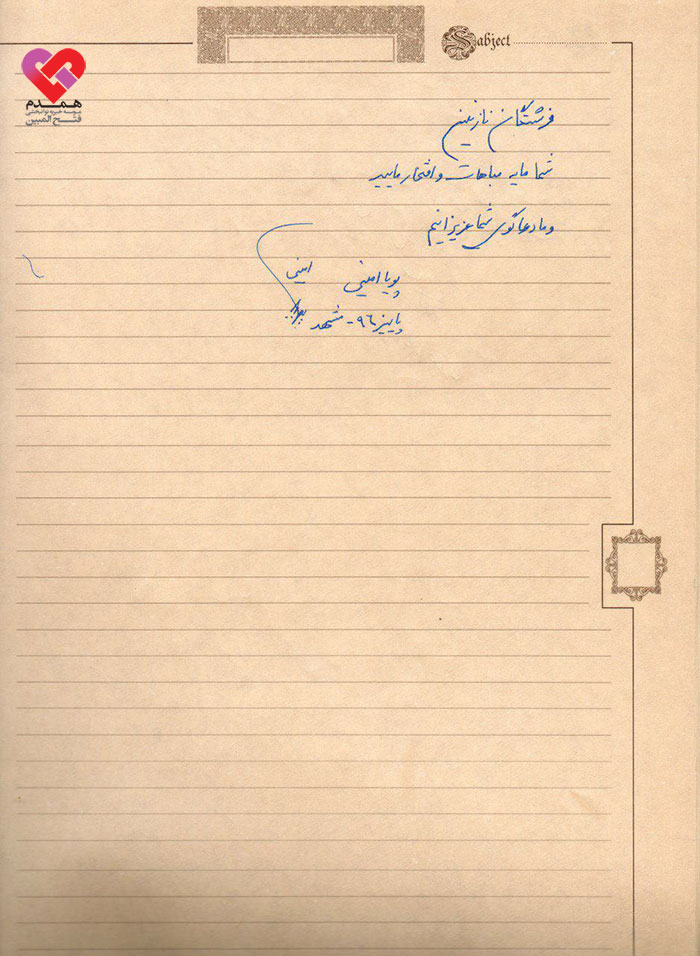 Sabject
همدم
موسسه خیریه توانبخشی
فتح المبین
فرشتگان نازنین
شما مایه مباهات و افتخار مایید
و ما دعاگوی شما عزیزانیم
پویا امینی امینی
پاییز ۹۶ - مشهد